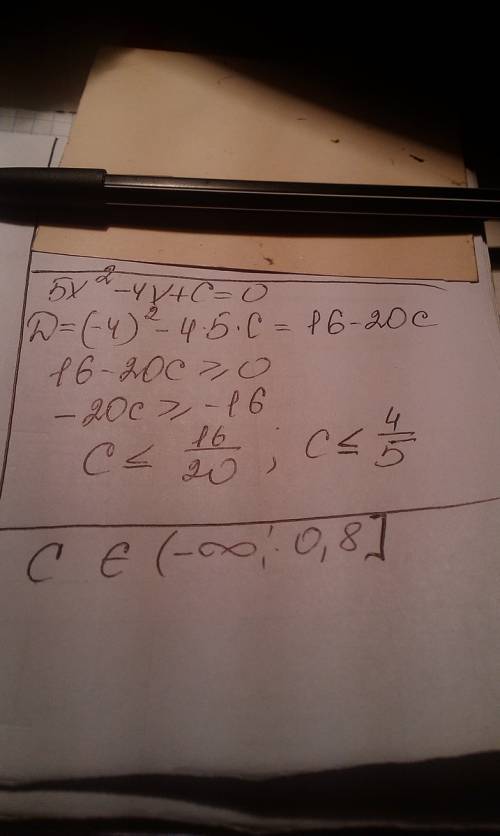 5x² - 4x + C = 0
D = (-4)² - 4·5·C = 16 - 20C
16 - 20C ⩾ 0
-20C ⩾ -16
C ≤ 16/20 ; C ≤ 4/5
C ∈ (-∞; 0,8]